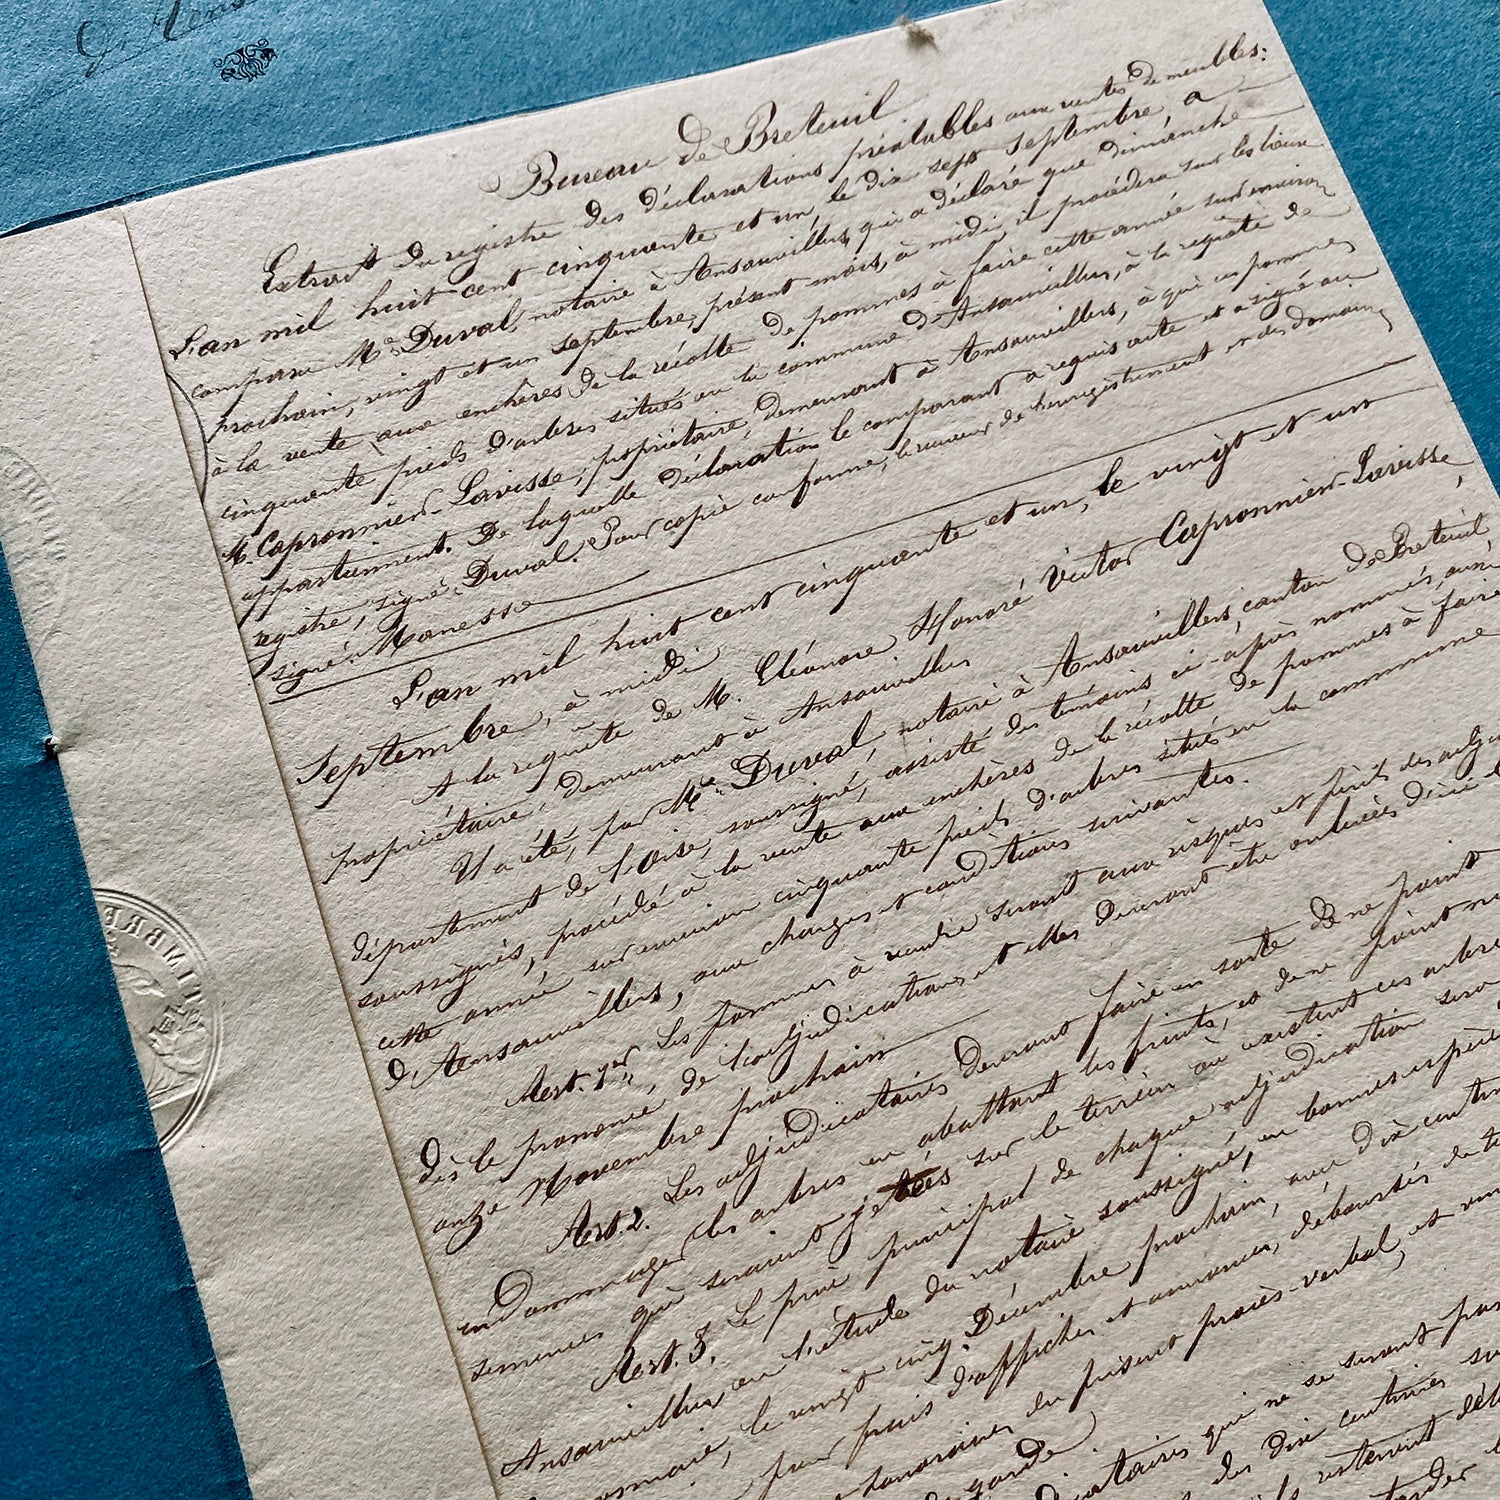 Bureau de Breteuil
Extrait du registre des déclarations préalables aux ventes de meubles:
L'an mil huit cent cinquante et un, le dix sept septembre, a
comparu Me. Duval, notaire à Ansauvillers, qui a déclaré que dimanche
prochain, vingt et un septembre, présent mois, à midi, il procédera sur les lieux
à la vente aux enchères de la récolte de pommes à faire cette année sur environ
cinquante pieds d'arbres situés en la commune d'Ansauvillers, à la requête de
M. Capronnier-Lavisse, propriétaire, demeurant à Ansauvillers, à qui ces pommes
appartiennent. De laquelle déclaration le comparant a requis acte et a signé au
registre, signé: Duval. Pour copie conforme, le receveur de l'enregistrement et des domaines
signé: Manesse
L'an mil huit cent cinquante et un, le vingt et un
Septembre, à midi
A la requête de M. Eléonore Honoré Victor Capronnier-Lavisse,
propriétaire, demeurant à Ansauvillers
Il a été, par Me. Duval, notaire à Ansauvillers, canton de Breteuil,
département de l'Oise, soussigné, assisté des témoins ci-après nommés, aussi
soussignés, procédé à la vente aux enchères de la récolte de pommes à faire
cette année sur environ cinquante pieds d'arbres situés en la commune
d'Ansauvillers, aux charges et conditions suivantes.
Art. 1er. Les pommes à vendre seront aux risques et périls des
dès le prononcé de l'adjudication, et elles devront être enlevées d'ici
onze Novembre prochain
Art. 2. Les adjudicataires devront faire en sorte de ne point
endommager les arbres en abattant les fruits, et de ne point
semences qui seraient jetées sur le terrein où existent ces arbres
Art. 3. Le prix principal de chaque adjudication sera
Ansauvillers en l'étude du notaire soussigné, en bonnes espèces
le vingt cinq Décembre prochain, avec dix centimes
pour frais d'affiches et annonces, déboursés de
honoraires du présent procès-verbal, et
garde
qui ne se seront pas
des dix centimes
resteront
TIMBRE